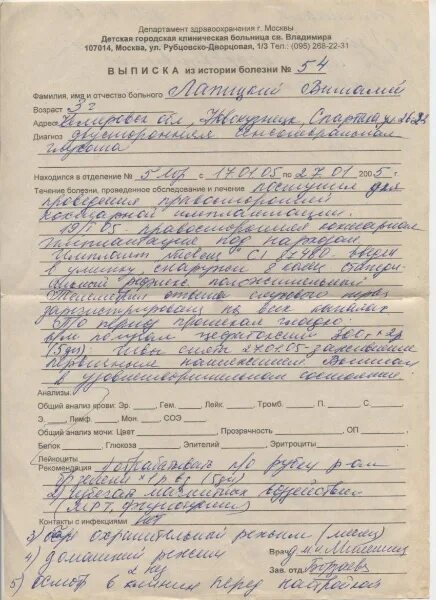 Департамент здравоохранения г. Москвы
Детская городская клиническая больница св. Владимира
107014, Москва, ул. Рубцовско-Дворцовая, 1/3 Тел.: (095) 268-22-31
ВЫПИСКА из истории болезни № 54
Фамилия, имя и отчество больного Лапицкий Виталий
Возраст 3 г
Адрес обл, г. Новокузнецк, Спартака
Диагноз двусторонняя сенсоневральная
глухота
Находился в отделение № 5 лор с 17.01.05 по 27.01 2005 г
Течение болезни, проведенное обследование и лечение поступил для
проведения правосторонней
кохлеарной имплантации.
19.01.05 - правосторонняя кохлеарная
имплантация под наркозом
Имплант введен
в улитку, снаружи
рефлекс положительный
Телеметрия ответа слухового нерва
зарегистрирован на всех каналах
П/о период протекал гладко
получал
(5дн) Швы сняты 27.01.05 заживление
первичным натяжением Выписан
в удовлетворительном состоянии.
Анализы
Общий анализ крови: Эр. Гем. Лейк. Тромб. П. С.
Э. Лимф. Мон. СОЭ
Общий анализ мочи: Цвет Прозрачность ОП
Белок Глюкоза Эпителий Эритроциты
Лейкоциты
Рекомендация обрабатывать п/о рубец р-ом
зелени x 1 р в д (5дн)
2) избегать магнитных воздействий
(МРТ, физиотерапии)
Контакты с инфекциями нет
3) охранительный режим (месяц)
4) домашний режим
2 нед
Врач
Зав. отд.
5) осмотр в клинике перед настройкой